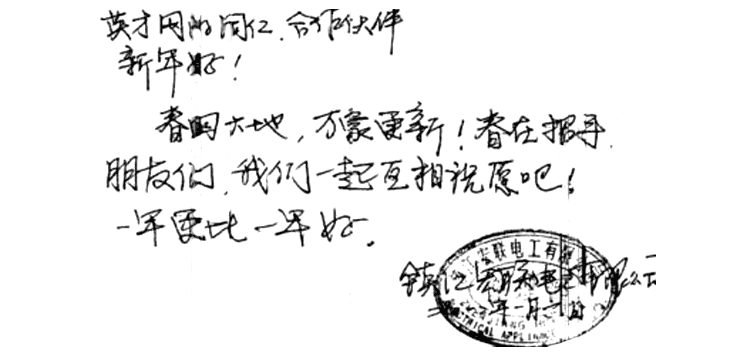 英才网的同仁、合作伙伴
新年好！
春回大地，万象更新！春在招手，
朋友们，我们一起互相祝愿吧！
一年更比一年好。
江宏联电工有限
镇江宏联电工有限公司
年一月六日